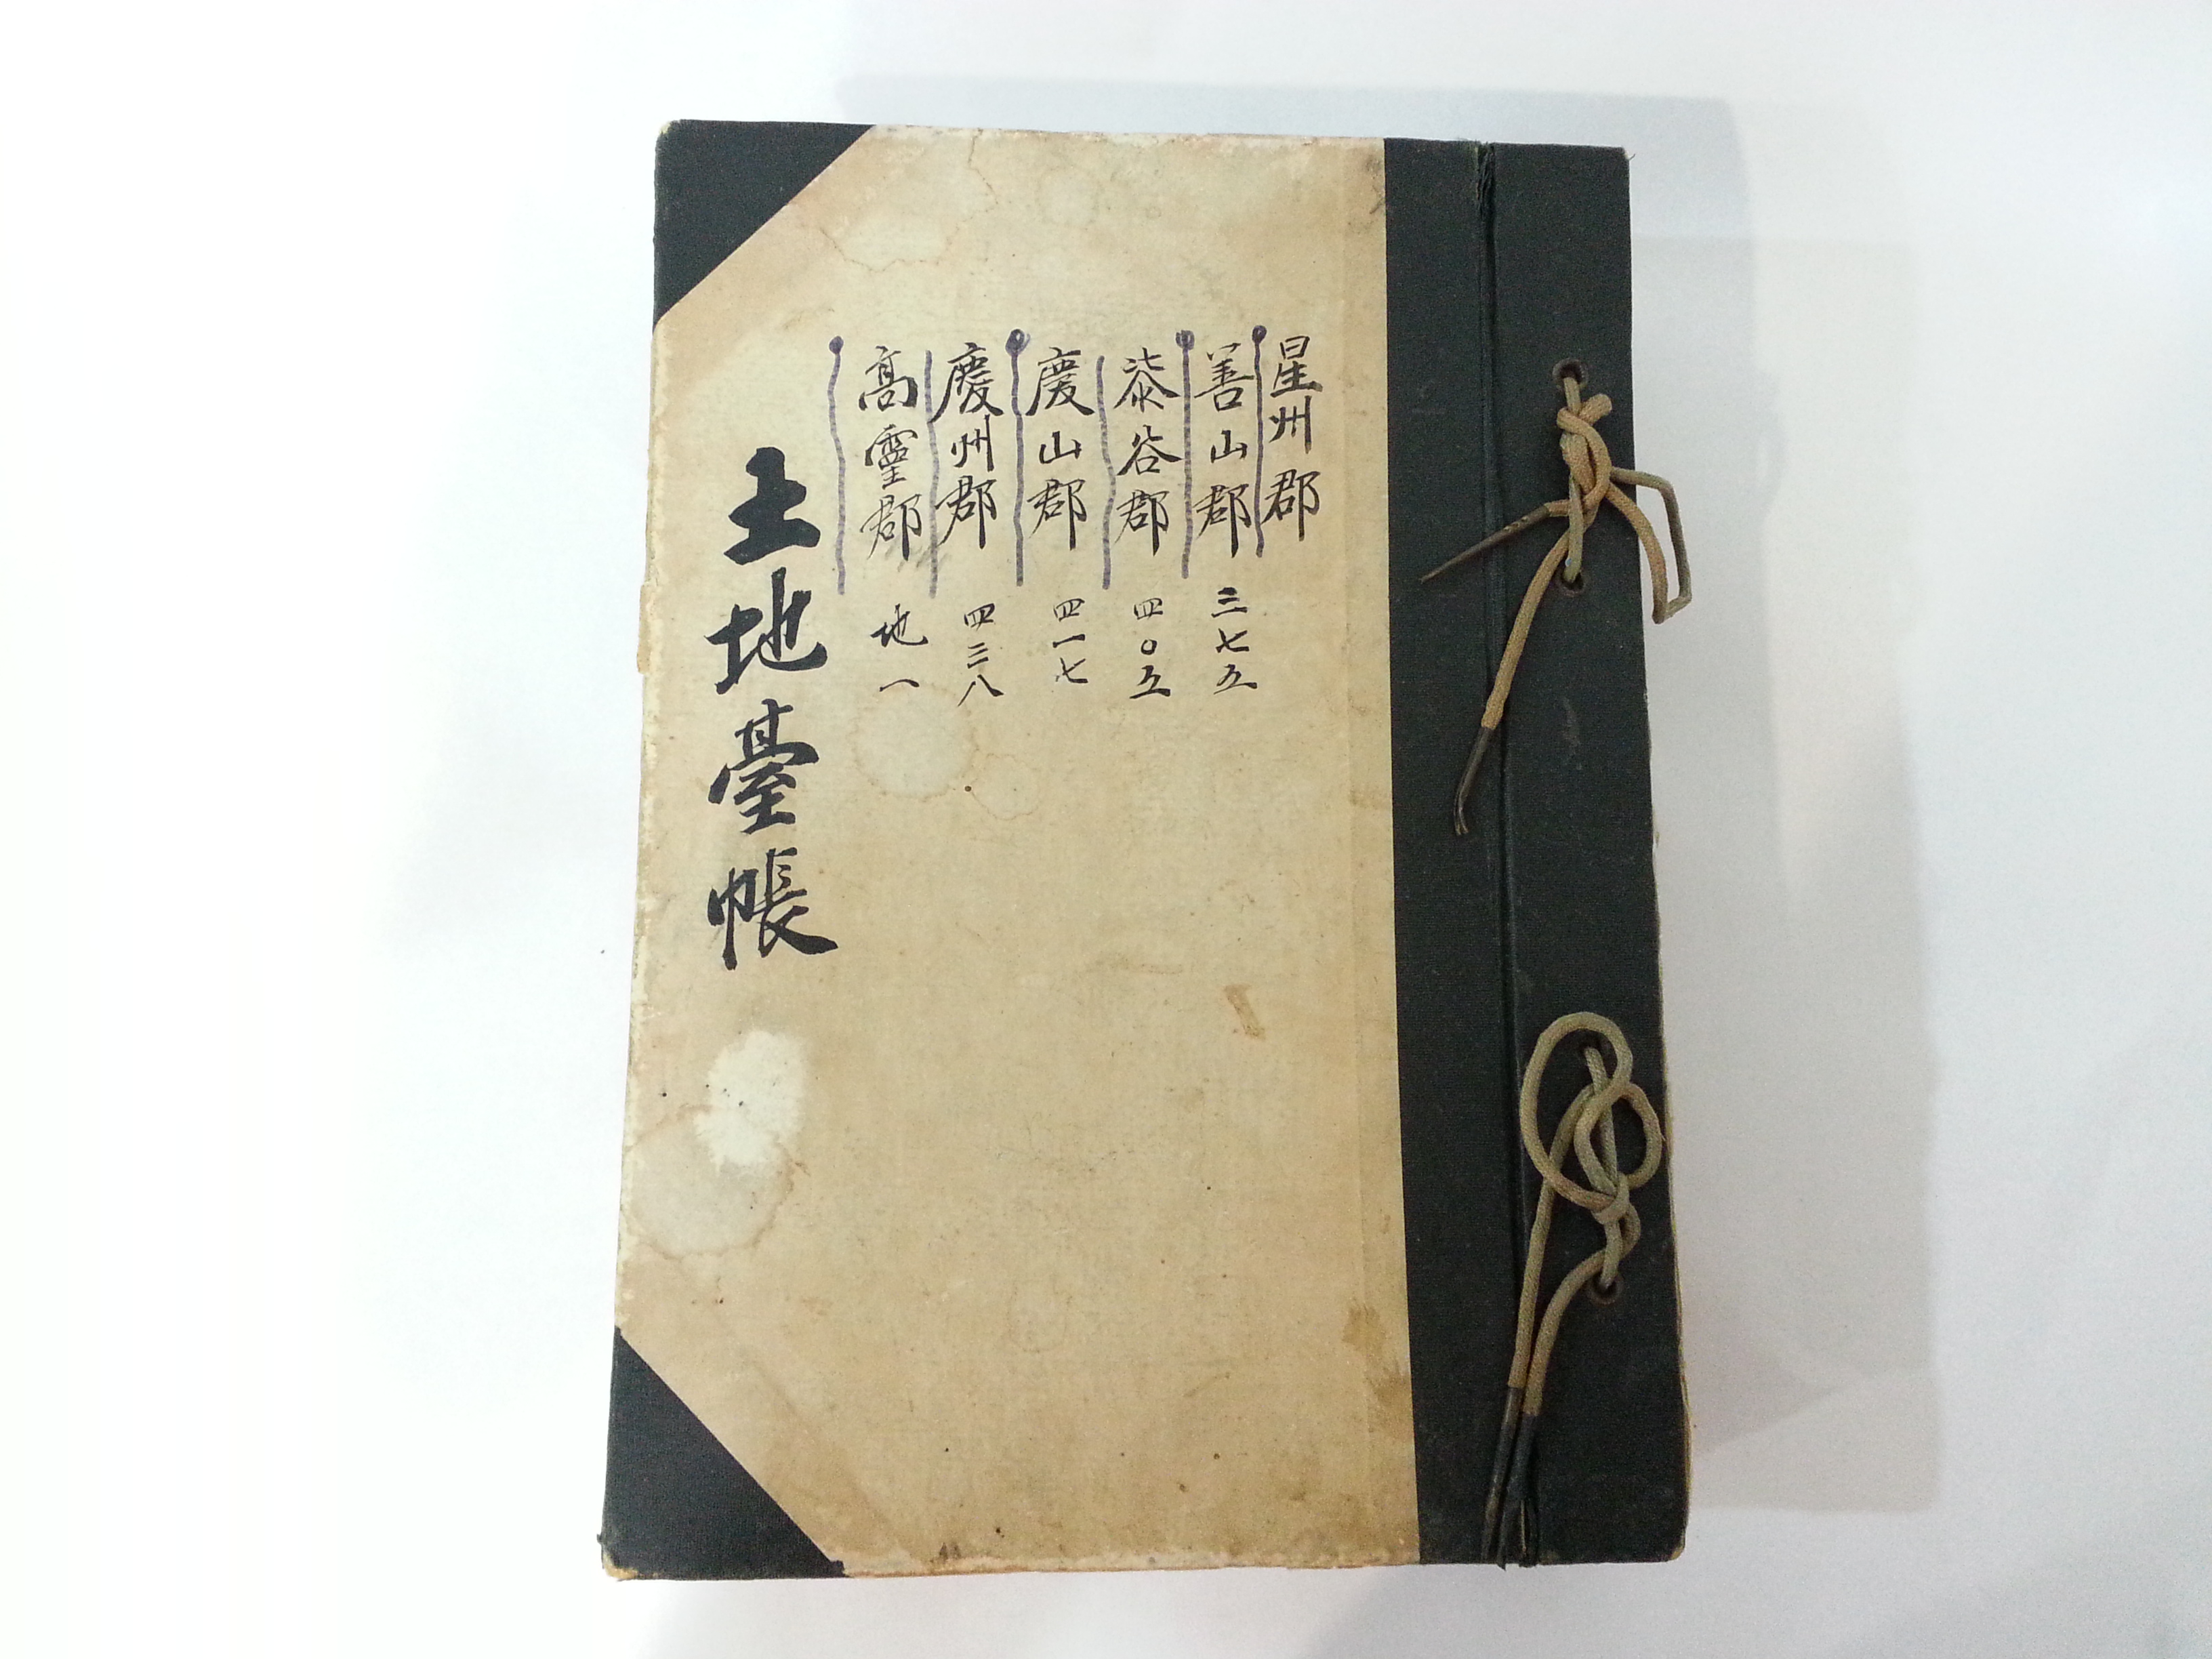 星州郡
善山郡 三七五
柒谷郡 四〇五
慶山郡 四一七
慶州郡 四三八
高靈郡 地一
土地臺帳